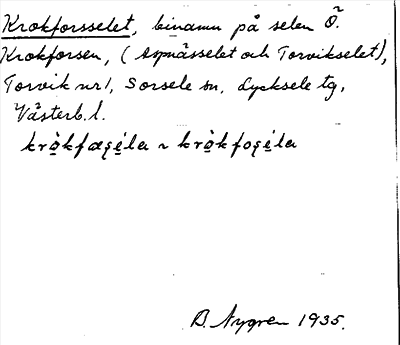 Krokforsselet, binamn på selen Ö.
Krokforsen, (Aspnässelet och Torvikselet),
Torvik nr 1, Sorsele sn, Lycksele tg,
Västerb. l.
B. Nygren 1935.